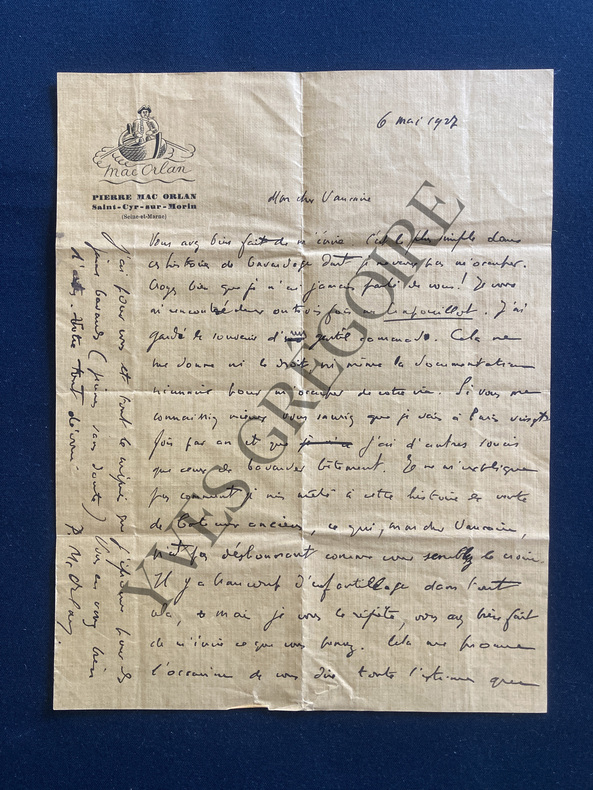 Mac Orlan
PIERRE MAC ORLAN
Saint-Cyr-sur-Morin
(Seine-et-Marne)
6 mai 1927
Mon cher Vaucaire
Vous avez bien fait de m'écrire c'est le plus simple dans
ces histoires de bavardage dont je ne veux pas m'occuper.
Croyez bien que je n'ai jamais parlé de vous ! Je vous
ai rencontré deux ou trois fois au Crapouillot. J'ai
gardé le souvenir d'un gentil camarade. Cela ne
me donne ni le droit, ni même la documentation
nécessaire pour m'occuper de votre vie. Si vous me
connaissiez mieux vous sauriez que je vais à Paris vingt
fois par an et que j'ai d'autres soucis
que ceux de bavarder bêtement. Je ne m'explique
pas comment je suis mêlé à cette histoire de vente
de bateaux anciens, ce qui, mon cher Vaucaire,
n'est pas déshonorant comme vous semblez le croire.
Il y a beaucoup d'enfantillage dans tout
cela, mais je vous le répète, vous avez bien fait
de m'écrire ce que vous pensez. Cela me donne
l'occasion de vous dire toute l'estime que
j'ai pour vous et tout le mépris que j'éprouve pour les
bavards (jeunes sans doute)
Votre tout dévoué
P. M. Orlan
YVES GRÉGOIRE